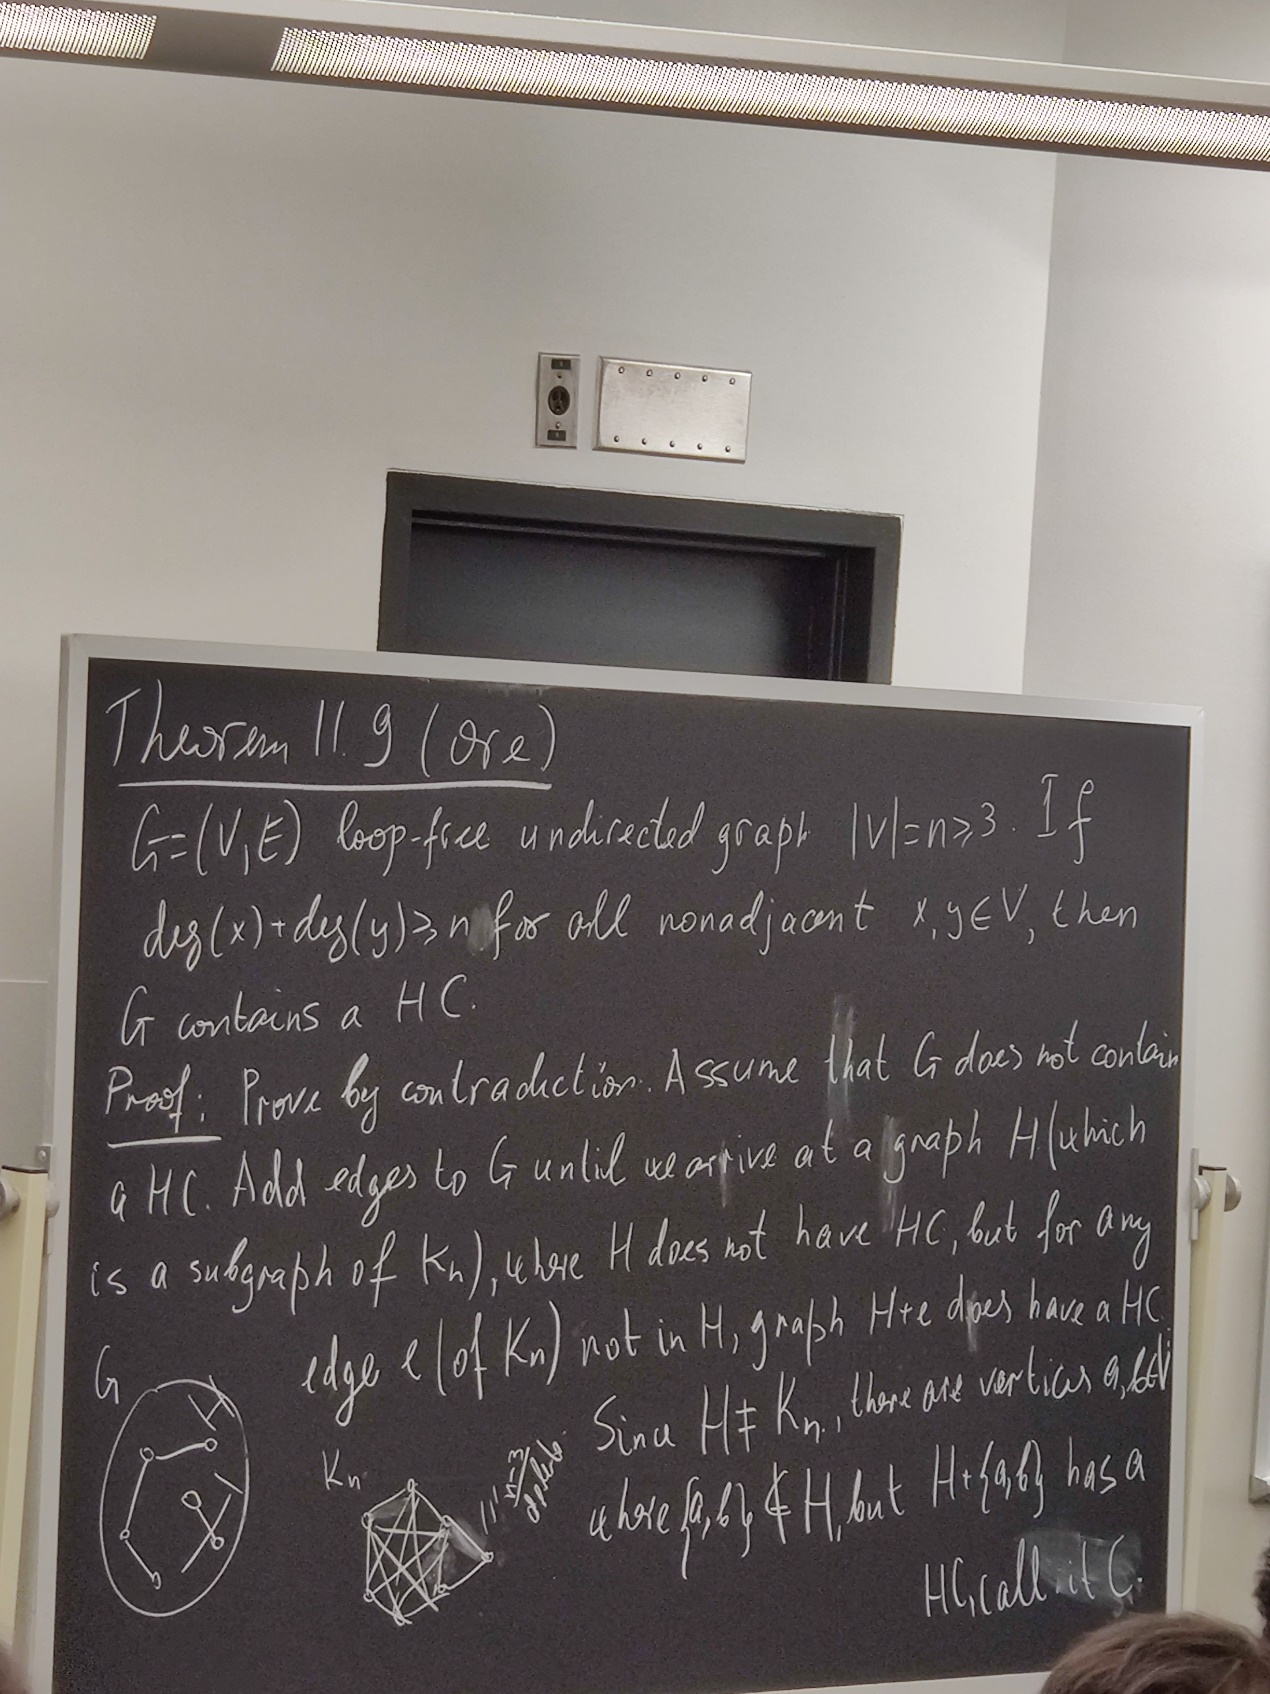 Theorem 11.9 (Ore)
G=(V,E) loop-free undirected graph |V|=n≥3. If
deg(x)+deg(y)≥n for all nonadjacent x,y∈V, then
G contains a HC.
Proof: Prove by contradiction. Assume that G does not contain
a HC. Add edges to G until we arrive at a graph H (which
is a subgraph of Kn), where H does not have HC, but for any
edge e (of Kn) not in H, graph H+e does have a HC.
Since H≠Kn, there are vertices a,b∈V
where {a,b}∉H, but H+{a,b} has a
HC, call it C.
G
Kn